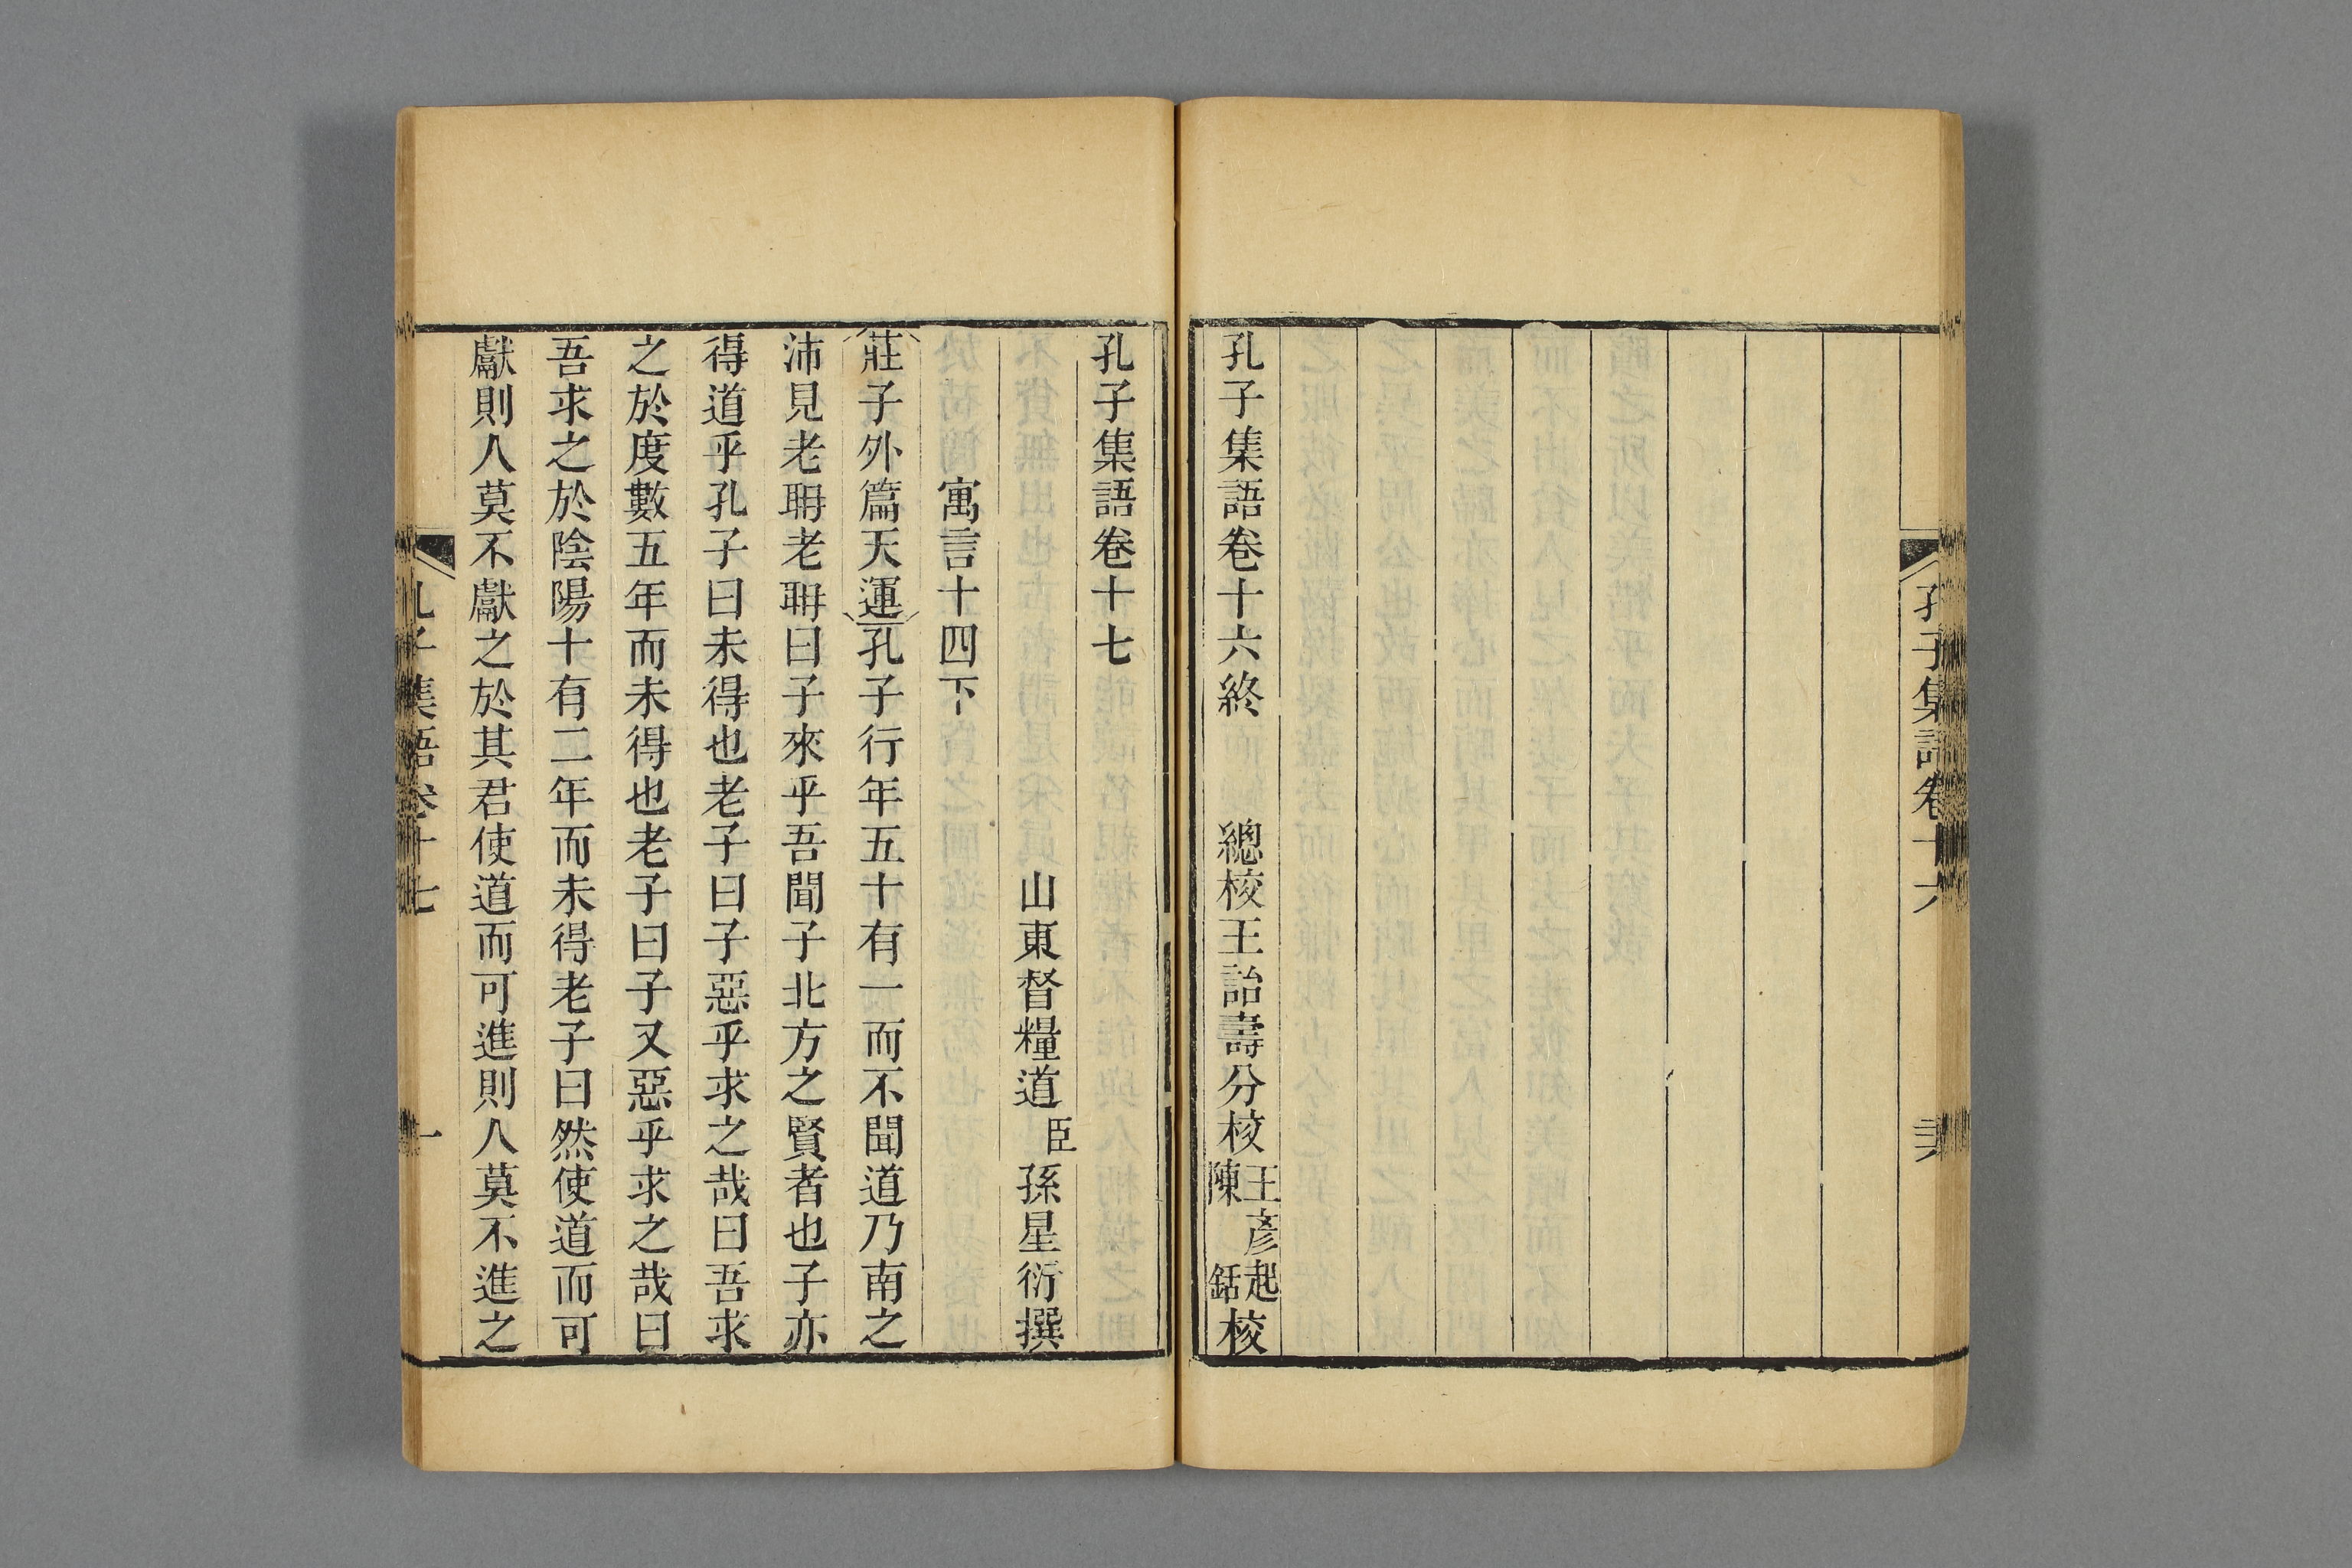 孔子集語卷十六
孔子集語卷十六終　總校王詒壽分校王彥起陳銛校
孔子集語卷十七
山東督糧道臣孫星衍撰
寓言十四下
莊子外篇天運孔子行年五十有一而不聞道乃南之
沛見老聃老聃曰子來乎吾聞子北方之賢者也子亦
得道乎孔子曰未得也老子曰子惡乎求之哉曰吾求
之於度數五年而未得也老子曰子又惡乎求之哉曰
吾求之於陰陽十有二年而未得老子曰然使道而可
獻則人莫不獻之於其君使道而可進則人莫不進之
孔子集語卷十七
一